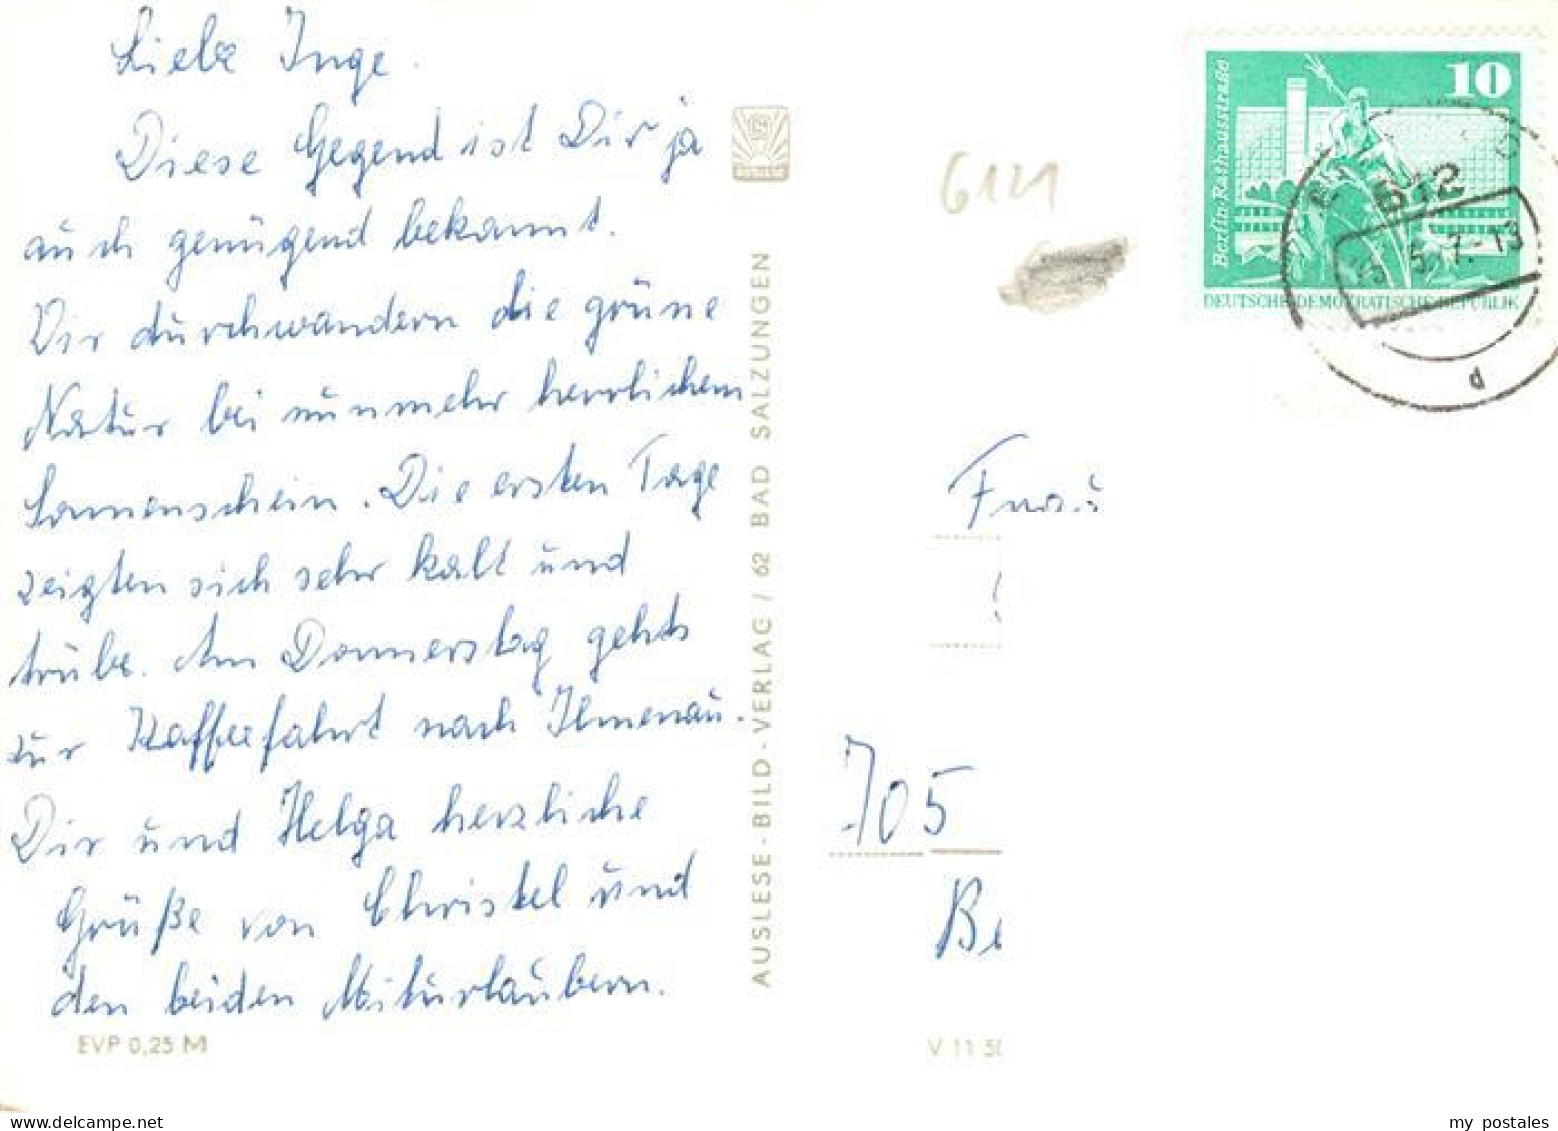 Liebe Inge.
Diese Gegend ist Dir ja
auch genügend bekannt.
Wir durchwandern die grüne
Natur bei nunmehr herrlichem
Sonnenschein. Die ersten Tage
zeigten sich sehr kalt und
trübe. Am Donnerstag gehts
zur Kaffeefahrt nach Ilmenau.
Dir und Helga herzliche
Grüße von Christel und
den beiden Miturlaubern.
EVP 0,25 M
AUSLESE-BILD-VERLAG / 62 BAD SALZUNGEN
6121
10
Berlin-Rathausstraße
DEUTSCHE DEMOKRATISCHE REPUBLIK
612
d
Frau
705
V 11 50
my postales